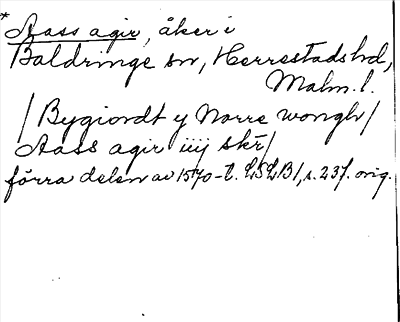 * Aass agir, åker i
Baldringe sn, Herrestads hd,
Malm. l.
/Bygiordt y Norre wongh/
Aass agir iiij skr/
förra delen av 1570-t. LSLB1, s. 237. orig.